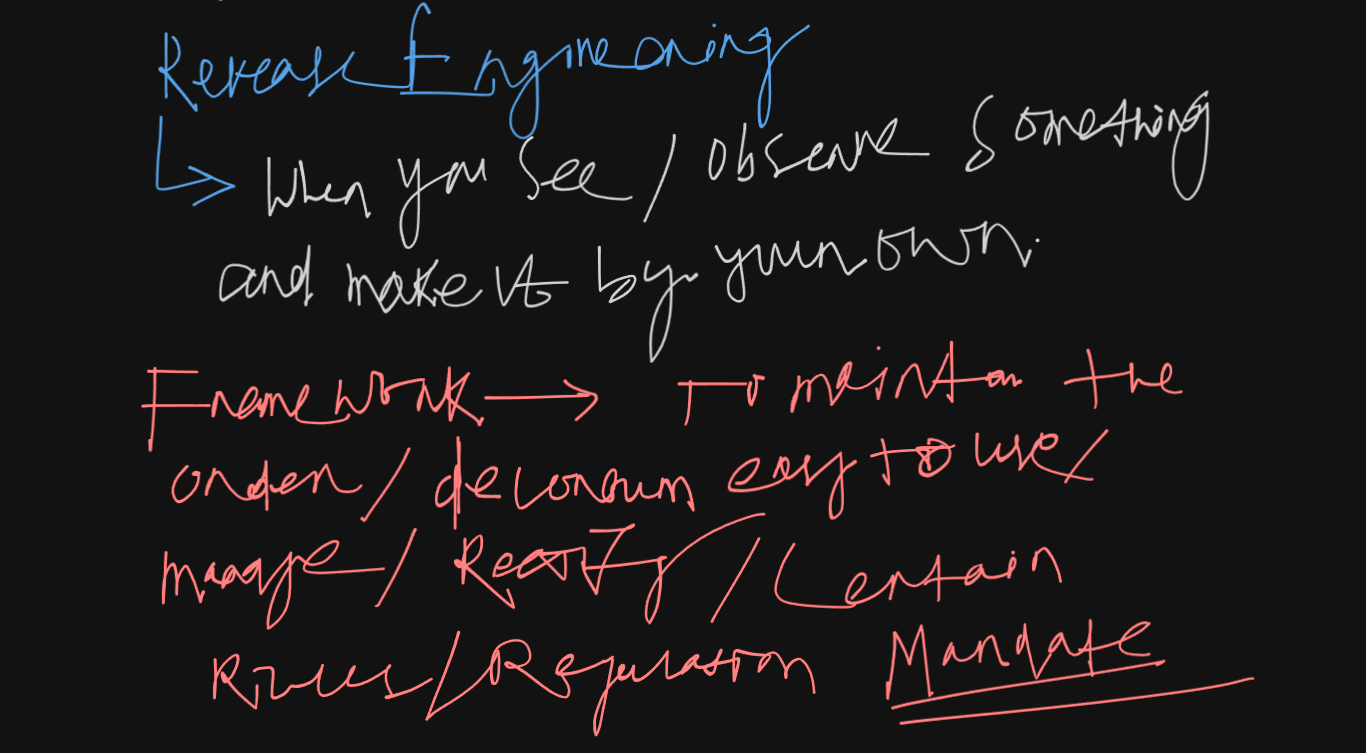 Reverse Engineering
When you see / observe something
and make it by your own.
Framework → To maintain the
order / decorum easy to use /
manage / Rectify / Certain
Rules / Regulation Mandate